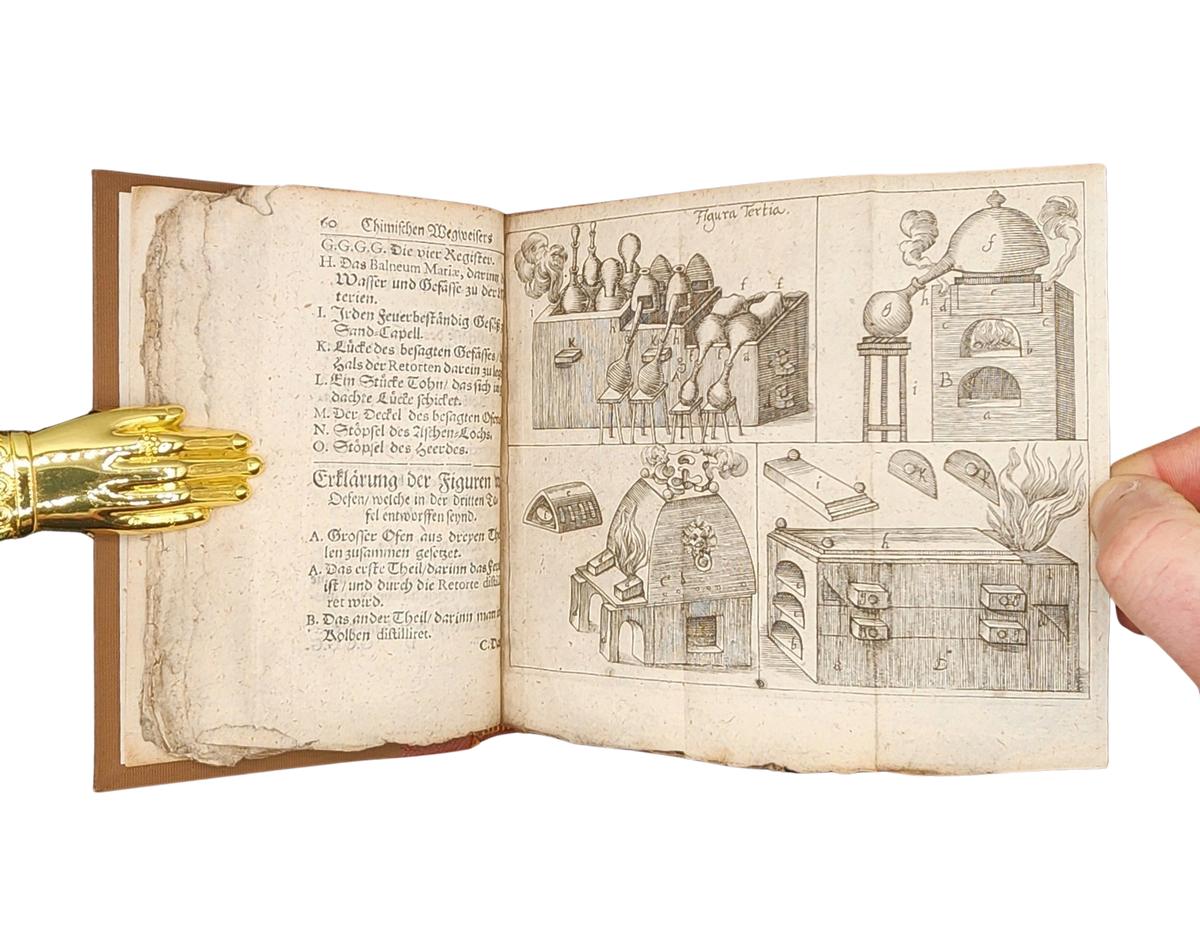 60 Chimischen Wegweisers
G.G.G.G. Die vier Register.
H. Das Balneum Mariæ, darinn
Wasser und Gefässe zu der
terien.
I. Irden Feuerbeständig
Sand-Capell.
K. Lücke des besagten Gefässes
Hals der Retorten darein zu
L. Ein Stücke Tohn / das sich
dachte Lücke schicket.
M. Der Deckel des besagten
N. Stöpsel des Aschen-Lochs.
O. Stöpsel des Heerdes.
Erklärung der Figuren
Oefen / welche in der dritten
fel entworffen seynd.
A. Grosser Ofen aus dreyen
len zusammen gesetzet.
A. Das erste Theil / darinn das
ist / und durch die Retorte
ret wird.
B. Das ander Theil / darinn man
Kolben distilliret.
Figura Tertia.
f
g
h
i
d
e
c
c
b
B
a
f
f
h
K
g
d
i
K
K
h
c
b
B